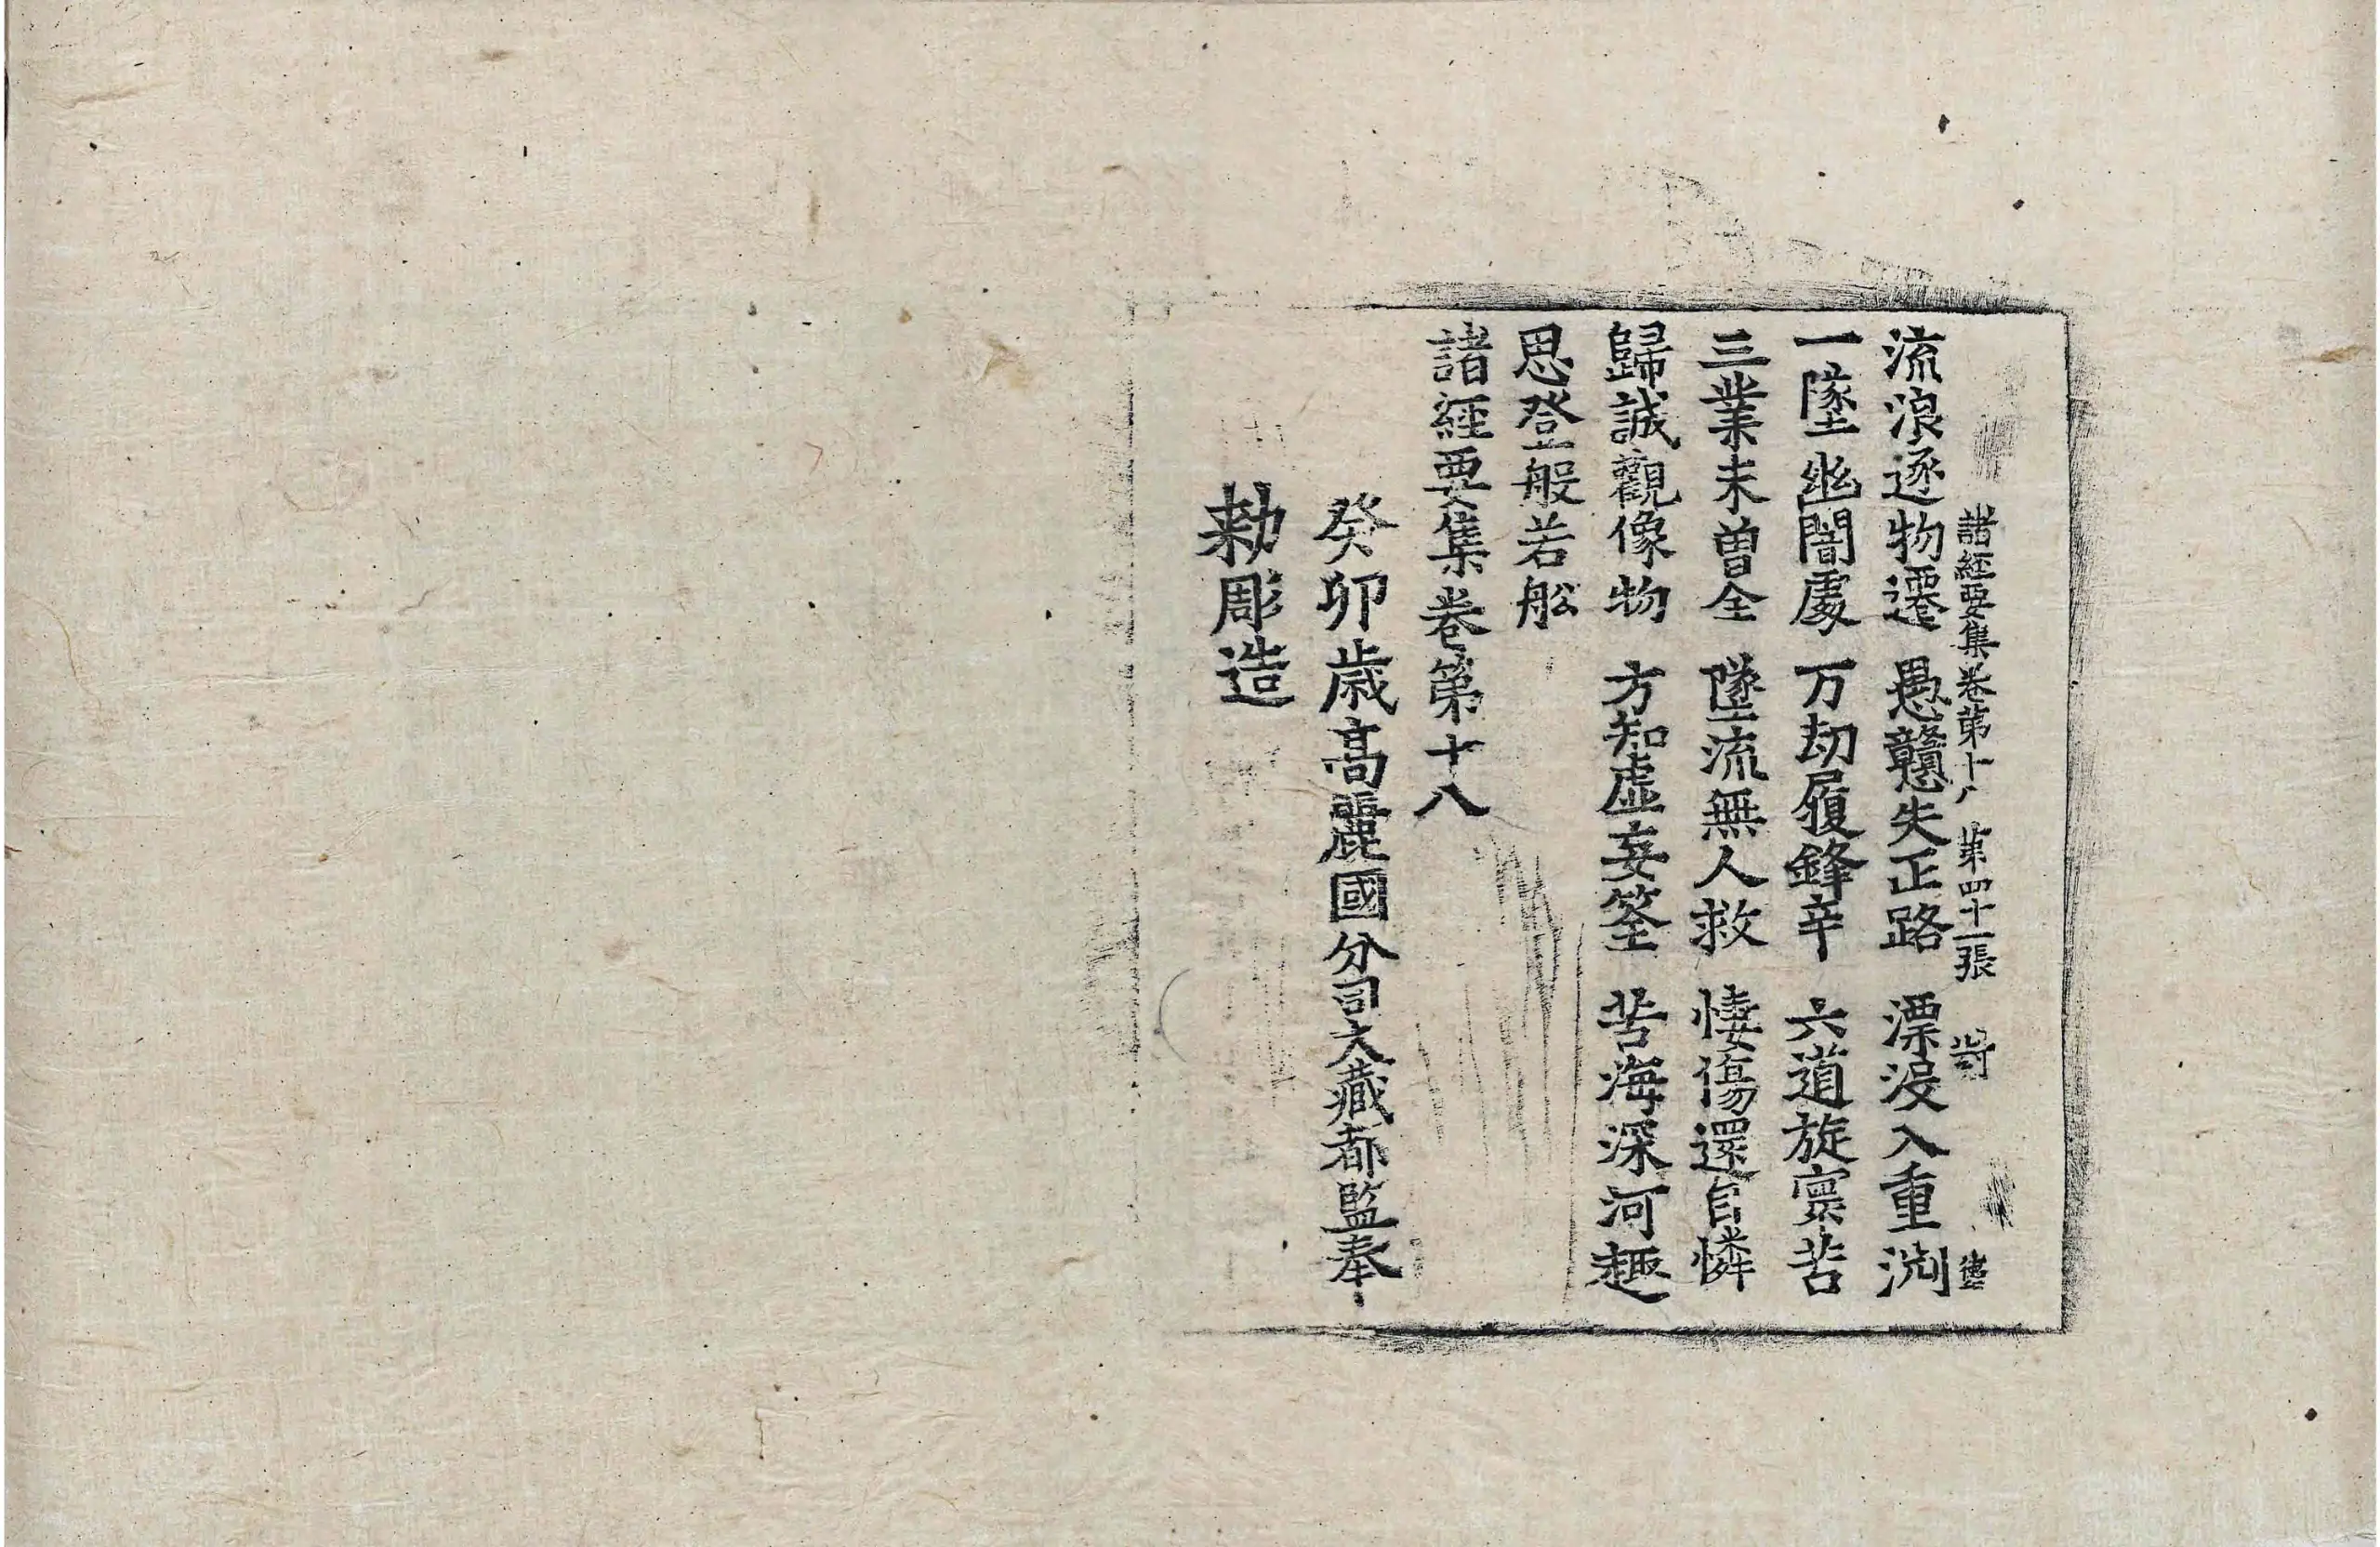 諸經要集卷第十八 第四十一張
流浪逐物遷 愚戇失正路 漂没入重渕
一墜幽闇處 万劫履鋒辛 六道旋禀苦
三業未曾全 墜流無人救 悽傷還自憐
歸誠觀像物 方知虛妄筌 苦海深河趣
思登般若舩
諸經要集卷第十八
癸卯歲高麗國分司大藏都監奉
勑彫造